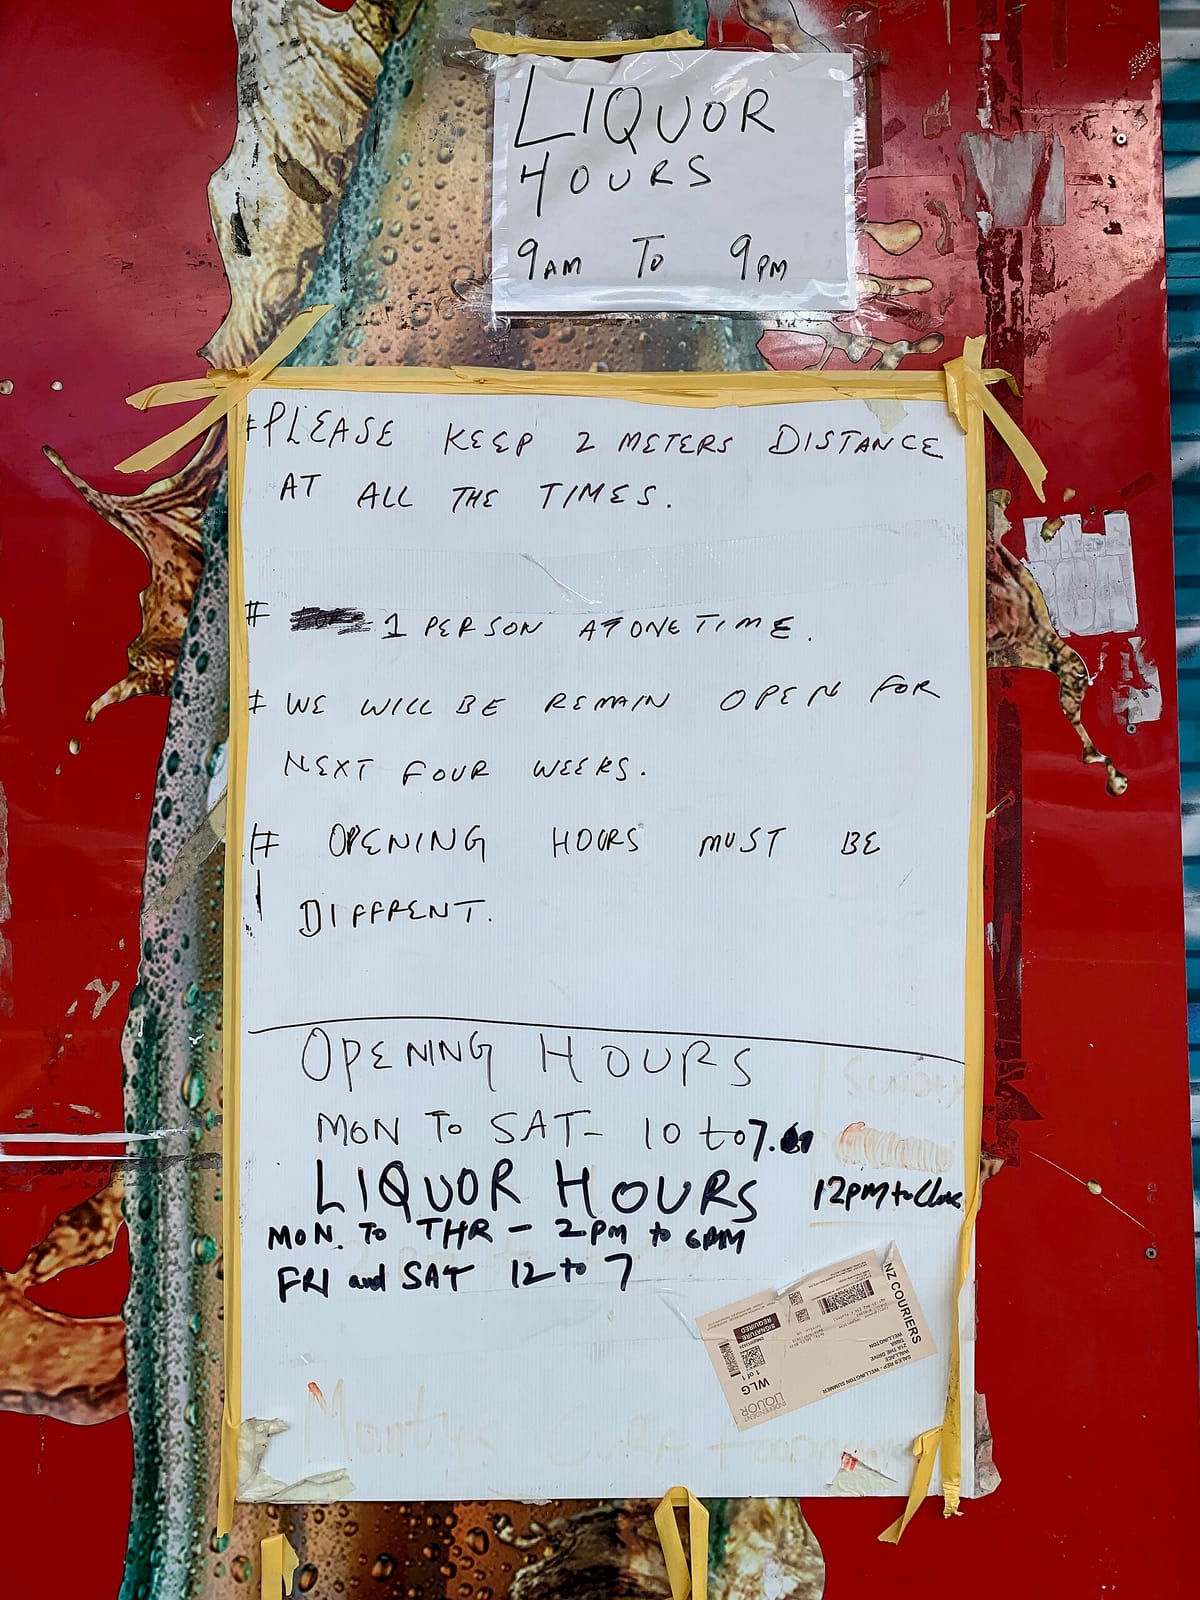 LIQUOR
HOURS
9AM TO 9PM
# PLEASE KEEP 2 METERS DISTANCE
AT ALL THE TIMES.
# 1 PERSON AT ONE TIME.
# WE WILL BE REMAIN OPEN FOR
NEXT FOUR WEEKS.
# OPENING HOURS MUST BE
DIFFRENT.
OPENING HOURS
SUNDAY
MON TO SAT - 10 to 7.
LIQUOR HOURS
12PM to Close
MON. TO THR - 2PM to 6PM
FRI and SAT 12 to 7
NZ COURIERS
SALES REP - WELLINGTON SUMMER
WALLACE
21A THE DRIVE
TAWA
WELLINGTON
SIGNATURE
REQUIRED
1 of 1
WLG
INDEPENDENT
LIQUOR